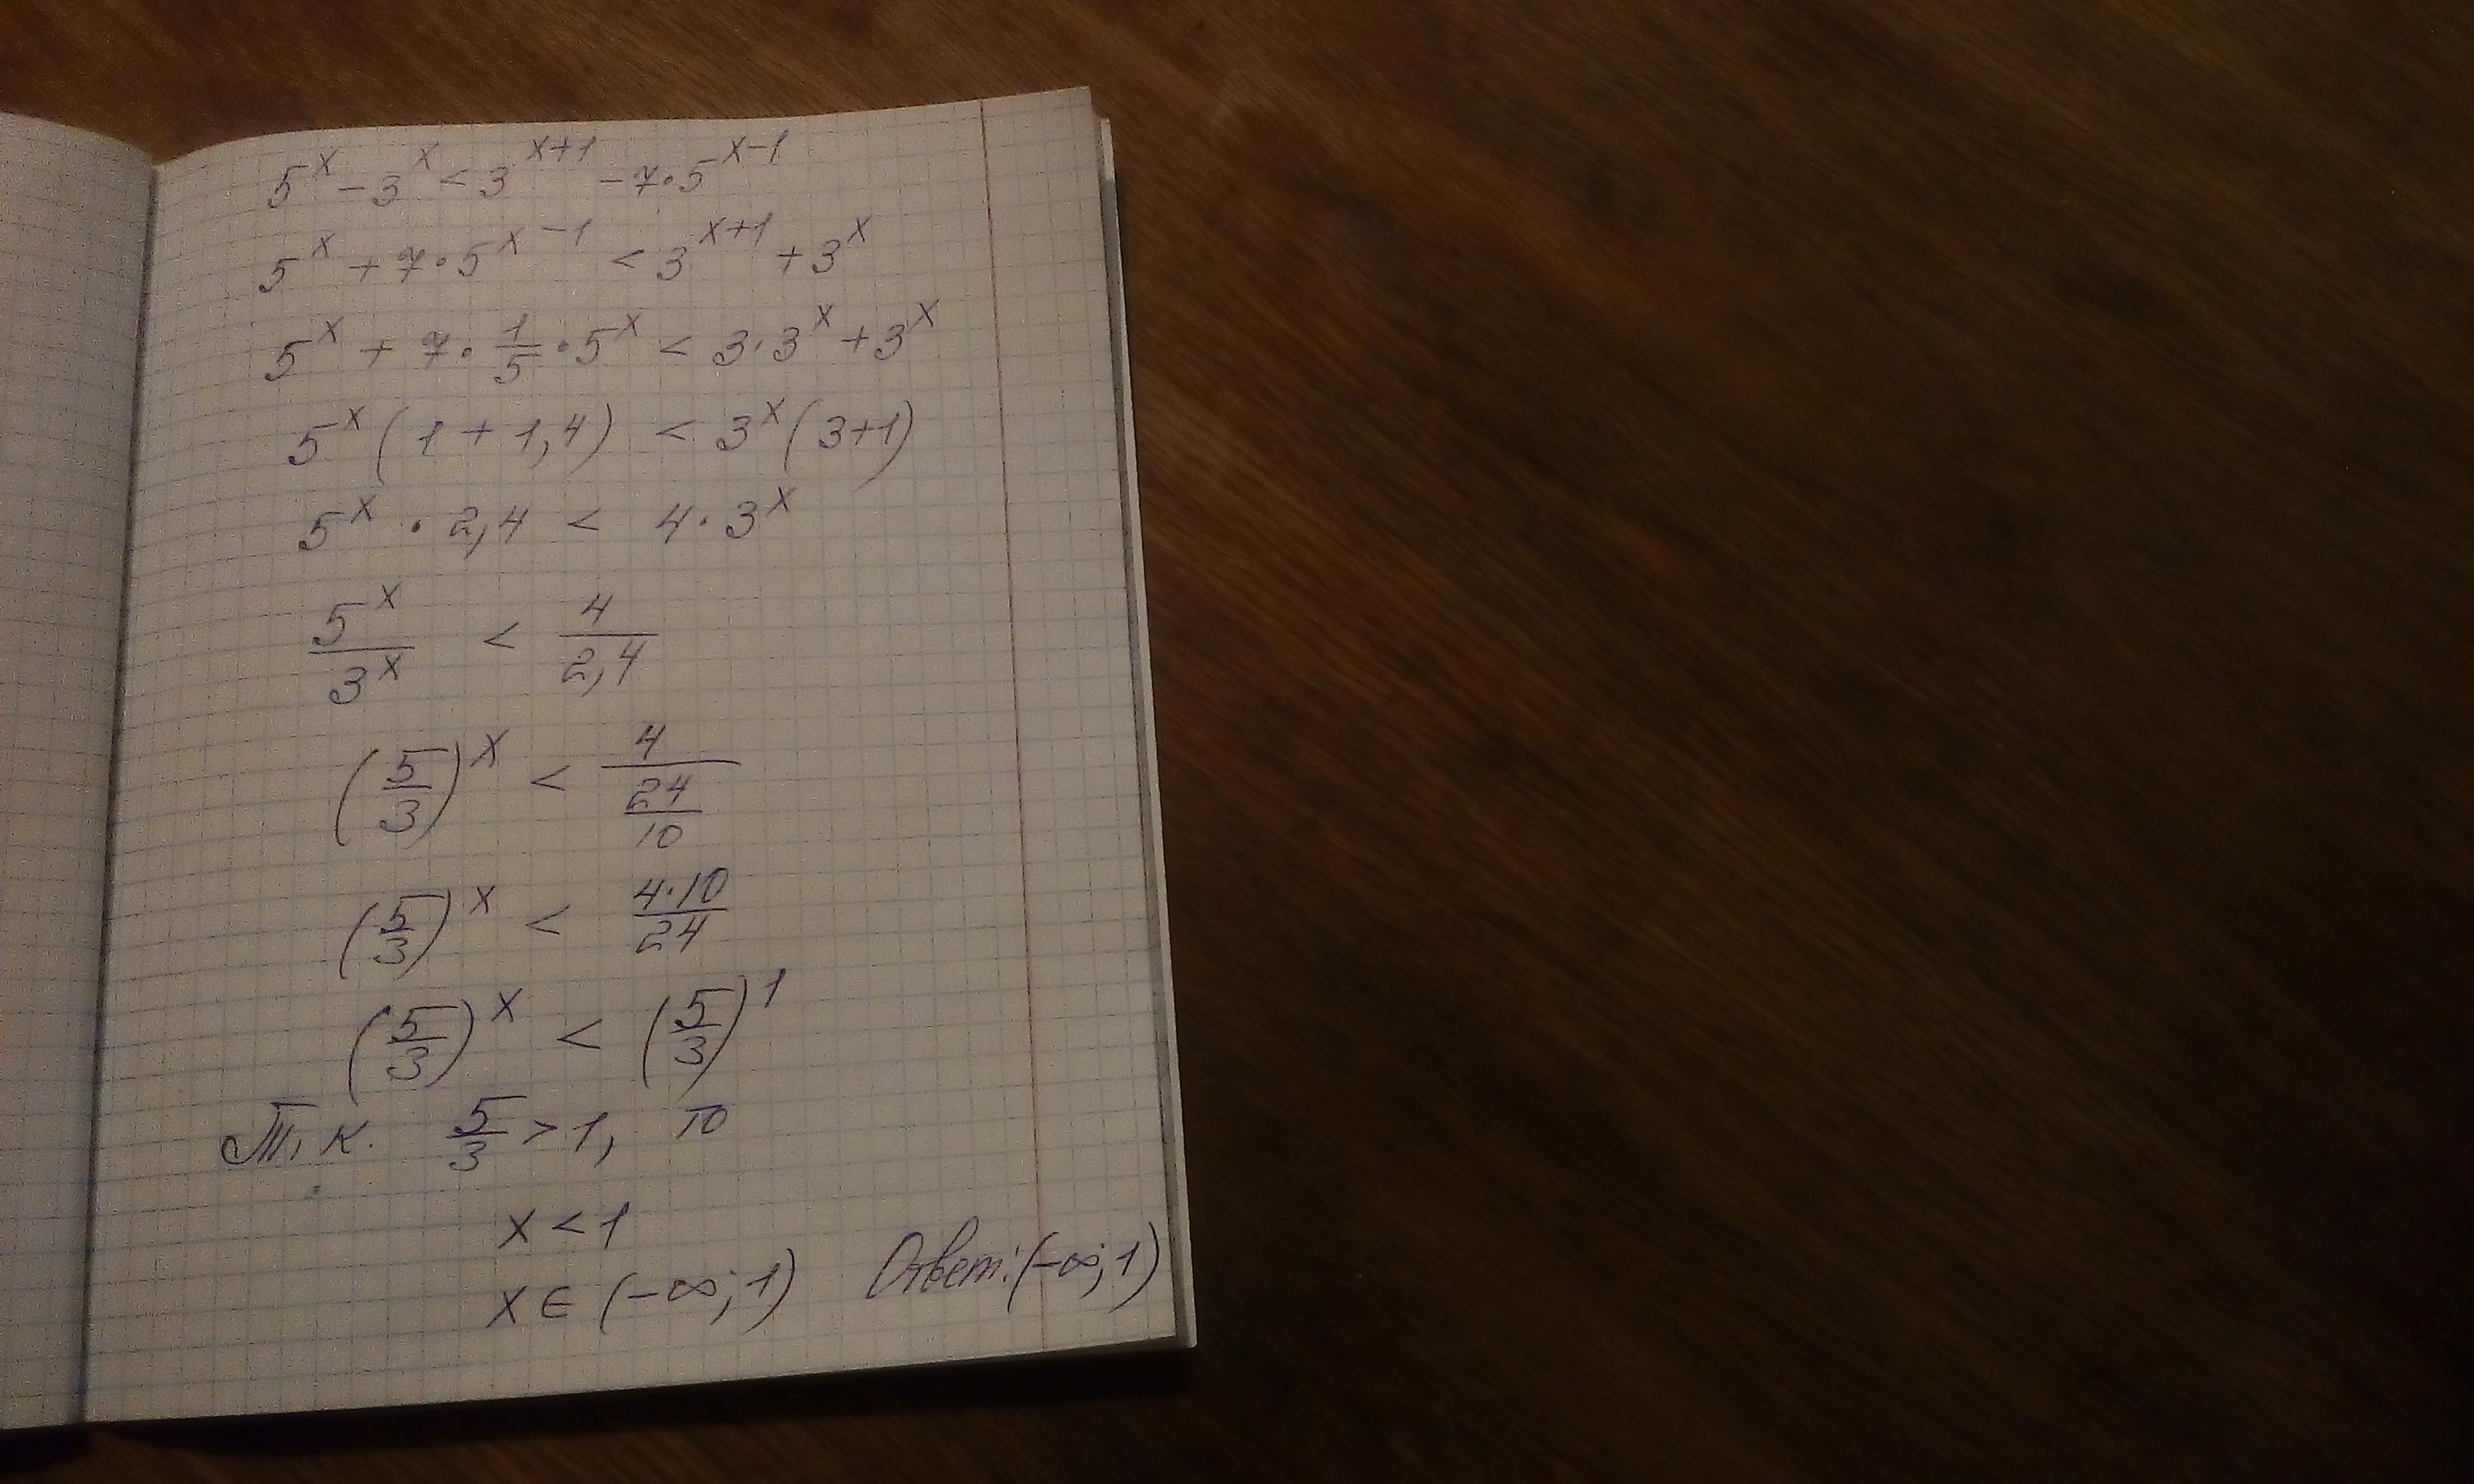 5^x − 3^x < 3^(x+1) − 7·5^(x−1)
5^x + 7·5^(x−1) < 3^(x+1) + 3^x
5^x + 7·1/5·5^x < 3·3^x + 3^x
5^x (1 + 1,4) < 3^x (3+1)
5^x · 2,4 < 4·3^x
5^x/3^x < 4/2,4
(5/3)^x < 4/(24/10)
(5/3)^x < 4·10/24
(5/3)^x < (5/3)^1
Т. к. 5/3 > 1, то
x < 1
x ∈ (−∞; 1) Ответ: (−∞; 1)